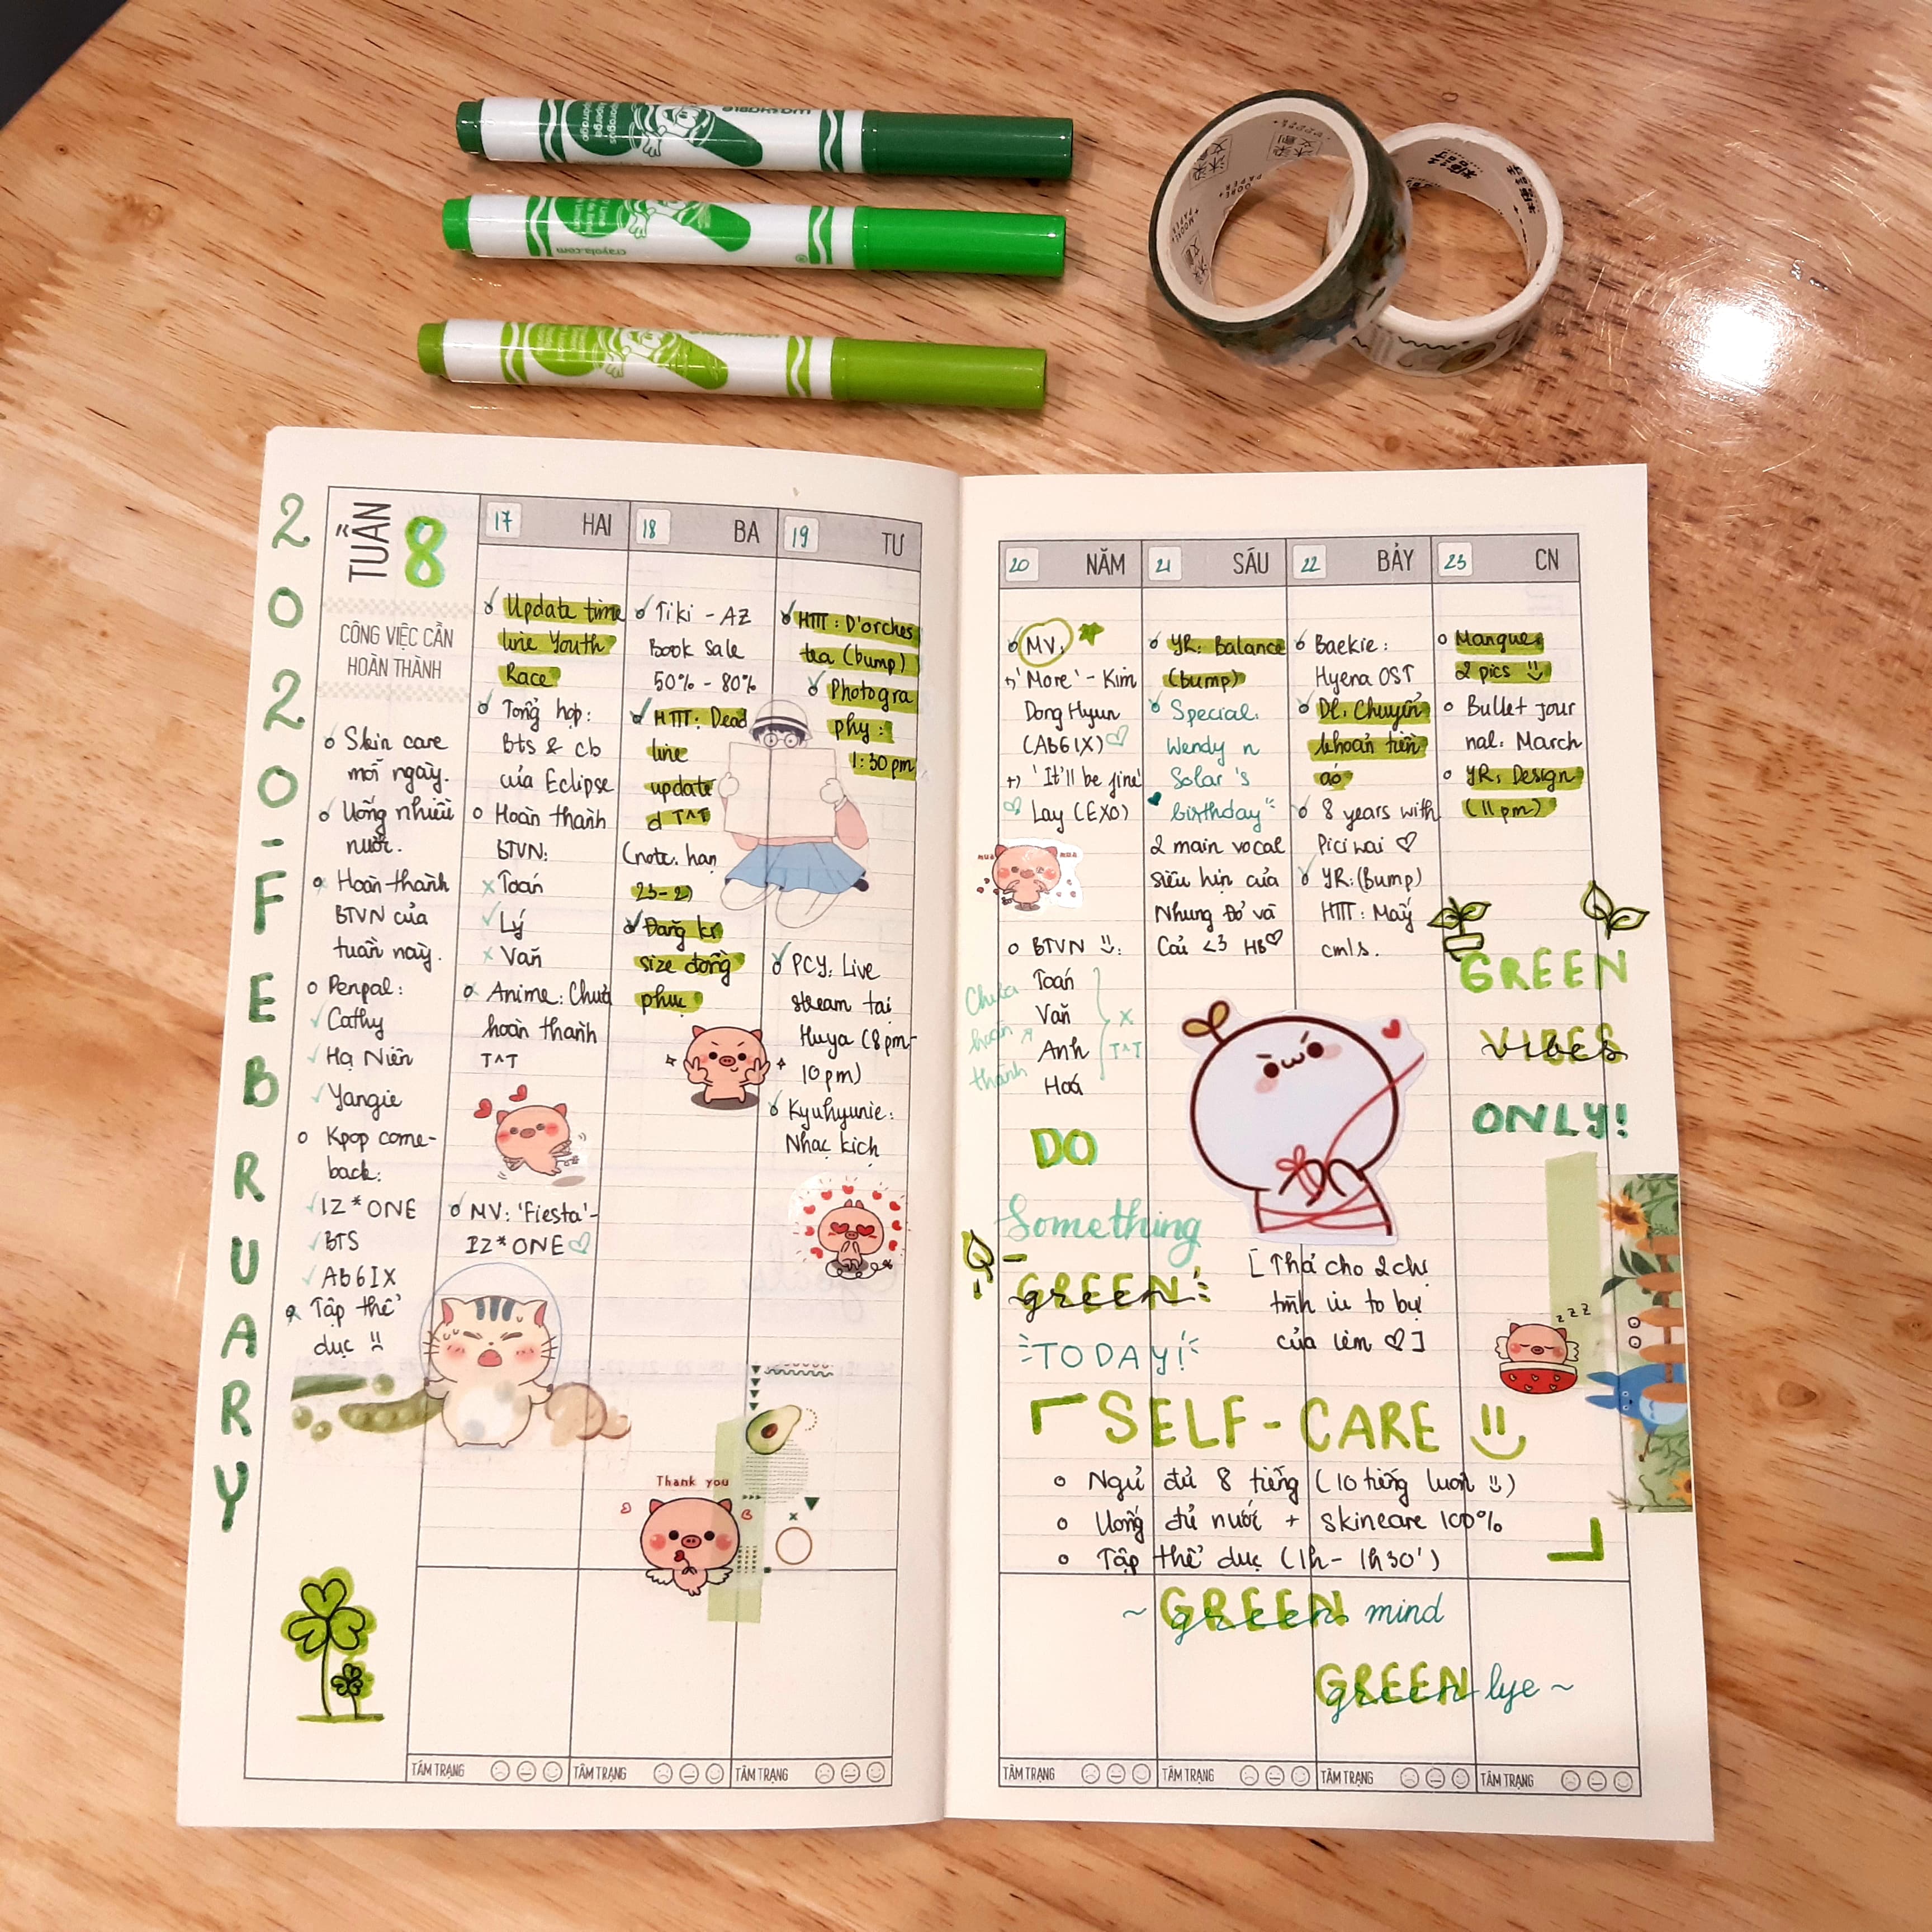 crayola.com
2020-FEBRUARY
TUẦN 8
CÔNG VIỆC CẦN
HOÀN THÀNH
Skin care
mỗi ngày.
Uống nhiều
nước.
Hoàn thành
BTVN của
tuần này.
Penpal:
Cathy
Hạ Niên
Yangie
Kpop come-
back:
IZ*ONE
BTS
AB6IX
Tập thể
dục
17 HAI
Update time
line Youth
Race
Tổng hợp:
Bts & cb
của Eclipse
Hoàn thành
BTVN:
x Toán
✓ Lý
x Văn
Anime: Chưa
hoàn thành
T^T
MV: 'Fiesta' -
IZ*ONE ♡
18 BA
Tiki - AZ
Book Sale
50% - 80%
HTTT: Dead
line
update
d T^T
(note: hạn
23-2)
Đăng kí
size đồng
phục
Thank you
19 TƯ
HTTT: D'orches
tra (bump)
Photogra
phy:
1:30 pm
PCY: Live
stream tại
Huya (8pm-
10pm)
Kyuhyunie:
Nhạc kịch
20 NĂM
MV:
'More' - Kim
Dong Hyun
(AB6IX) ♡
'It'll be fine'
♡ Lay (EXO)
mua mua
BTVN :
Toán
Văn
Anh
Hoá
Chưa
hoàn
thành
x
T^T
DO
Something
GREEN
green
TODAY!
21 SÁU
YR: Balance
(bump)
Special:
Wendy n
Solar's
birthday
2 main vocal
siêu hịn của
Nhung Đỏ và
Cải <3 HB♡
22 BẢY
Baekie:
Hyena OST
DL: Chuyển
khoản tiền
áo
8 years with
Pici wai ♡
YR: (Bump)
HTTT: Mấy
cmls.
[Thả cho 2 chị
tình iu to bự
của lém ♡]
23 CN
Manques
2 pics
Bullet jour
nal: March
YR: Design
(11pm)
GREEN
VIBES
vibes
ONLY!
z z z
SELF-CARE
Ngủ đủ 8 tiếng (10 tiếng luôn :))
Uống đủ nước + skincare 100%
Tập thể dục (1h - 1h30')
~ GREEN green mind
GREEN green lye ~
TÂM TRẠNG
TÂM TRẠNG
TÂM TRẠNG
TÂM TRẠNG
TÂM TRẠNG
TÂM TRẠNG
TÂM TRẠNG